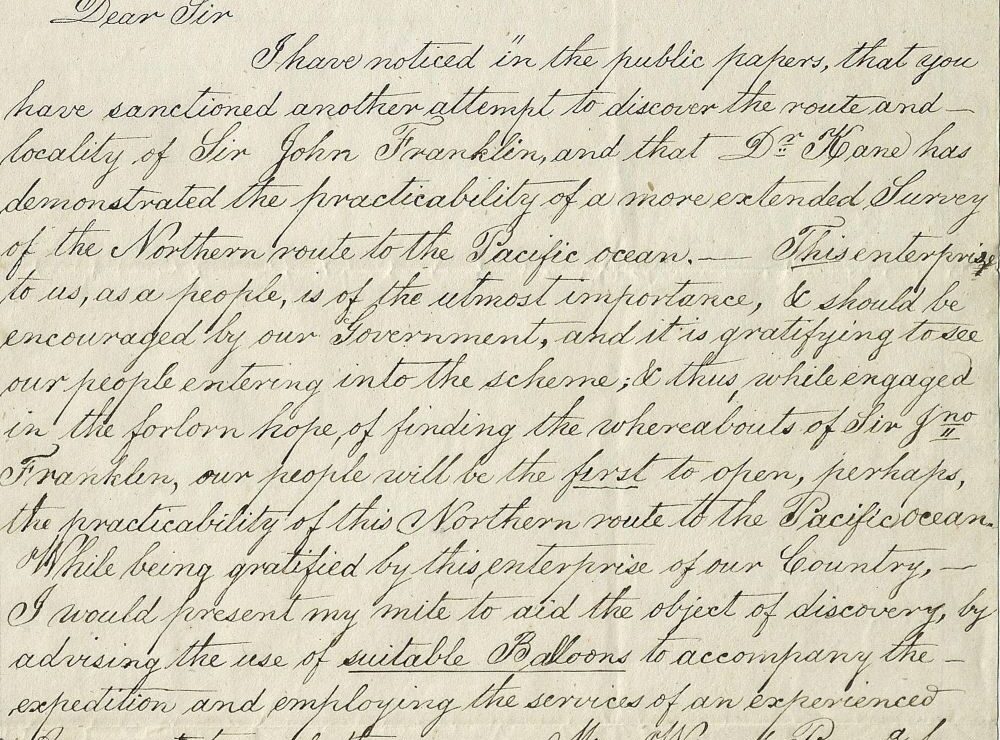 Dear Sir
I have noticed in the public papers, that you
have sanctioned another attempt to discover the route and —
locality of Sir John Franklin, and that Dr Kane has
demonstrated the practicability of a more extended Survey
of the Northern route to the Pacific ocean. — This enterprise
to us, as a people, is of the utmost importance, & should be
encouraged by our Government, and it is gratifying to see
our people entering into the scheme; & thus, while engaged
in the forlorn hope, of finding the whereabouts of Sir Jno
Franklin, our people will be the first to open, perhaps,
the practicability of this Northern route to the Pacific ocean.
While being gratified by this enterprise of our Country, —
I would present my mite to aid the object of discovery, by
advising the use of suitable Balloons to accompany the —
expedition and employing the services of an experienced